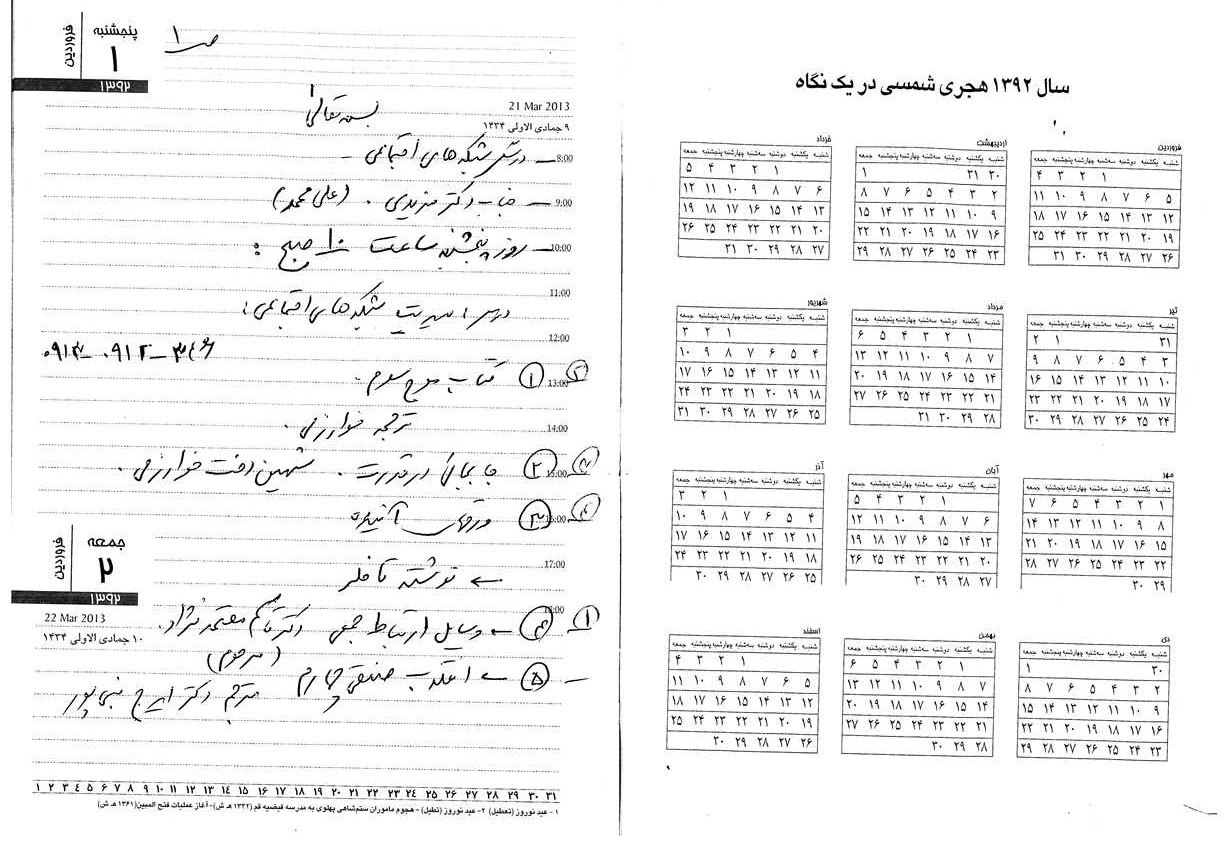 سال ۱۳۹۲ هجری شمسی در یک نگاه
فروردین
شنبه یکشنبه دوشنبه سه‌شنبه چهارشنبه پنجشنبه جمعه
۱ ۲ ۳ ۴
۵ ۶ ۷ ۸ ۹ ۱۰ ۱۱
۱۲ ۱۳ ۱۴ ۱۵ ۱۶ ۱۷ ۱۸
۱۹ ۲۰ ۲۱ ۲۲ ۲۳ ۲۴ ۲۵
۲۶ ۲۷ ۲۸ ۲۹ ۳۰ ۳۱
اردیبهشت
شنبه یکشنبه دوشنبه سه‌شنبه چهارشنبه پنجشنبه جمعه
۳۰ ۳۱ ۱
۲ ۳ ۴ ۵ ۶ ۷ ۸
۹ ۱۰ ۱۱ ۱۲ ۱۳ ۱۴ ۱۵
۱۶ ۱۷ ۱۸ ۱۹ ۲۰ ۲۱ ۲۲
۲۳ ۲۴ ۲۵ ۲۶ ۲۷ ۲۸ ۲۹
خرداد
شنبه یکشنبه دوشنبه سه‌شنبه چهارشنبه پنجشنبه جمعه
۱ ۲ ۳ ۴ ۵
۶ ۷ ۸ ۹ ۱۰ ۱۱ ۱۲
۱۳ ۱۴ ۱۵ ۱۶ ۱۷ ۱۸ ۱۹
۲۰ ۲۱ ۲۲ ۲۳ ۲۴ ۲۵ ۲۶
۲۷ ۲۸ ۲۹ ۳۰ ۳۱
تیر
شنبه یکشنبه دوشنبه سه‌شنبه چهارشنبه پنجشنبه جمعه
۳۱ ۱ ۲
۳ ۴ ۵ ۶ ۷ ۸ ۹
۱۰ ۱۱ ۱۲ ۱۳ ۱۴ ۱۵ ۱۶
۱۷ ۱۸ ۱۹ ۲۰ ۲۱ ۲۲ ۲۳
۲۴ ۲۵ ۲۶ ۲۷ ۲۸ ۲۹ ۳۰
مرداد
شنبه یکشنبه دوشنبه سه‌شنبه چهارشنبه پنجشنبه جمعه
۱ ۲ ۳ ۴ ۵ ۶
۷ ۸ ۹ ۱۰ ۱۱ ۱۲ ۱۳
۱۴ ۱۵ ۱۶ ۱۷ ۱۸ ۱۹ ۲۰
۲۱ ۲۲ ۲۳ ۲۴ ۲۵ ۲۶ ۲۷
۲۸ ۲۹ ۳۰ ۳۱
شهریور
شنبه یکشنبه دوشنبه سه‌شنبه چهارشنبه پنجشنبه جمعه
۱ ۲ ۳
۴ ۵ ۶ ۷ ۸ ۹ ۱۰
۱۱ ۱۲ ۱۳ ۱۴ ۱۵ ۱۶ ۱۷
۱۸ ۱۹ ۲۰ ۲۱ ۲۲ ۲۳ ۲۴
۲۵ ۲۶ ۲۷ ۲۸ ۲۹ ۳۰ ۳۱
مهر
شنبه یکشنبه دوشنبه سه‌شنبه چهارشنبه پنجشنبه جمعه
۱ ۲ ۳ ۴ ۵ ۶ ۷
۸ ۹ ۱۰ ۱۱ ۱۲ ۱۳ ۱۴
۱۵ ۱۶ ۱۷ ۱۸ ۱۹ ۲۰ ۲۱
۲۲ ۲۳ ۲۴ ۲۵ ۲۶ ۲۷ ۲۸
۲۹ ۳۰
آبان
شنبه یکشنبه دوشنبه سه‌شنبه چهارشنبه پنجشنبه جمعه
۱ ۲ ۳ ۴ ۵
۶ ۷ ۸ ۹ ۱۰ ۱۱ ۱۲
۱۳ ۱۴ ۱۵ ۱۶ ۱۷ ۱۸ ۱۹
۲۰ ۲۱ ۲۲ ۲۳ ۲۴ ۲۵ ۲۶
۲۷ ۲۸ ۲۹ ۳۰
آذر
شنبه یکشنبه دوشنبه سه‌شنبه چهارشنبه پنجشنبه جمعه
۱ ۲ ۳
۴ ۵ ۶ ۷ ۸ ۹ ۱۰
۱۱ ۱۲ ۱۳ ۱۴ ۱۵ ۱۶ ۱۷
۱۸ ۱۹ ۲۰ ۲۱ ۲۲ ۲۳ ۲۴
۲۵ ۲۶ ۲۷ ۲۸ ۲۹ ۳۰
دی
شنبه یکشنبه دوشنبه سه‌شنبه چهارشنبه پنجشنبه جمعه
۳۰ ۱
۲ ۳ ۴ ۵ ۶ ۷ ۸
۹ ۱۰ ۱۱ ۱۲ ۱۳ ۱۴ ۱۵
۱۶ ۱۷ ۱۸ ۱۹ ۲۰ ۲۱ ۲۲
۲۳ ۲۴ ۲۵ ۲۶ ۲۷ ۲۸ ۲۹
بهمن
شنبه یکشنبه دوشنبه سه‌شنبه چهارشنبه پنجشنبه جمعه
۱ ۲ ۳ ۴ ۵ ۶
۷ ۸ ۹ ۱۰ ۱۱ ۱۲ ۱۳
۱۴ ۱۵ ۱۶ ۱۷ ۱۸ ۱۹ ۲۰
۲۱ ۲۲ ۲۳ ۲۴ ۲۵ ۲۶ ۲۷
۲۸ ۲۹ ۳۰
اسفند
شنبه یکشنبه دوشنبه سه‌شنبه چهارشنبه پنجشنبه جمعه
۱ ۲ ۳ ۴
۵ ۶ ۷ ۸ ۹ ۱۰ ۱۱
۱۲ ۱۳ ۱۴ ۱۵ ۱۶ ۱۷ ۱۸
۱۹ ۲۰ ۲۱ ۲۲ ۲۳ ۲۴ ۲۵
۲۶ ۲۷ ۲۸ ۲۹ ۳۰
ص ۱
پنجشنبه
۱
فروردین
۱۳۹۲
21 Mar 2013
۹ جمادی الاولی ۱۴۳۴
بسمه تعالی
8:00 – درس شبکه های اجتماعی –
9:00 – جناب دکتر مزیدی . (علی محمد)
10:00 – روز پنجشنبه ساعت ۱۰ صبح :
11:00
درس : مدیریت شبکه های اجتماعی :
12:00
۰۹۱۲
13:00 ۱ کتاب موج سوم .
ترجمه خوارزمی .
14:00
15:00 ۲ جابجائی در قدرت . شهین دخت خوارزمی .
16:00 ۳ ورقهای آینده
17:00
← نوشته تافلر
18:00
۱ ۴ ← وسایل ارتباط جمعی دکتر کاظم معتمدنژاد.
(مرحوم)
– ۵ ← انقلاب صنعتی چهارم مترجم دکتر ایرج نبی پور
جمعه
۲
فروردین
۱۳۹۲
22 Mar 2013
۱۰ جمادی الاولی ۱۴۳۴
۱ ۲ ۳ ۴ ۵ ۶ ۷ ۸ ۹ ۱۰ ۱۱ ۱۲ ۱۳ ۱۴ ۱۵ ۱۶ ۱۷ ۱۸ ۱۹ ۲۰ ۲۱ ۲۲ ۲۳ ۲۴ ۲۵ ۲۶ ۲۷ ۲۸ ۲۹ ۳۰ ۳۱
۱ - عید نوروز (تعطیل) ۲- عید نوروز (تعطیل) - هجوم ماموران ستم‌شاهی پهلوی به مدرسه فیضیه قم (۱۳۴۲ هـ ش) - آغاز عملیات فتح المبین (۱۳۶۱ هـ ش)